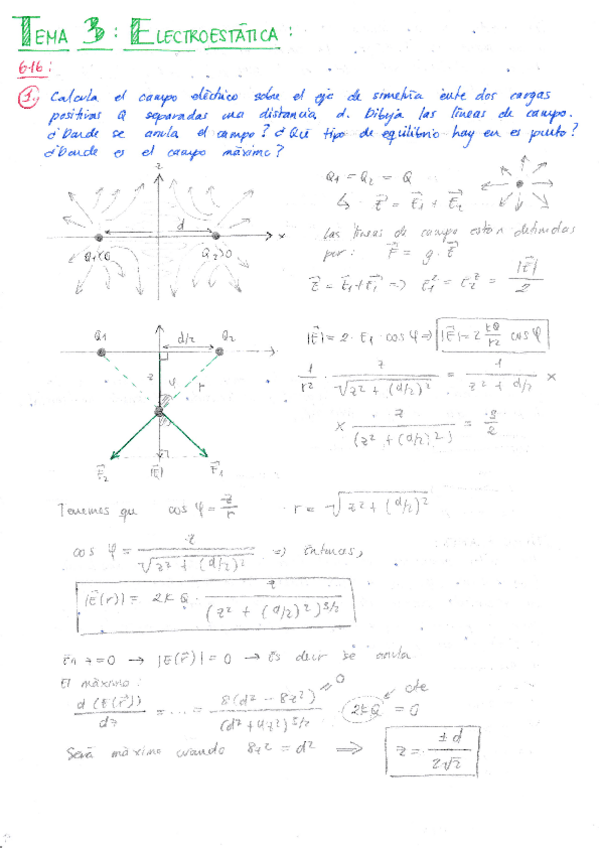 TEMA 3: ELECTROESTÁTICA:
6.16:
1. Calcula el campo eléctrico sobre el eje de simetría entre dos cargas
positivas Q separadas una distancia d. Dibuja las líneas de campo.
¿Donde se anula el campo? ¿Qué tipo de equilibrio hay en es punto?
¿Donde es el campo máximo?
z
d
x
Q₂>0
Q₁ = Q₂ = Q
las líneas de campo están definidas
por: F = q · E
Q₁
d/2
Q₂
z
φ
r
F₂
|E|
F₁
|E| = 2 · E₁ · cos φ ⇒ |E| = 2 kQ/r² cos φ
1/r² · z/√(z² + (d/2)²) = 1/(z² + d/2) ×
Tenemos que cos φ = z/r · r = √(z² + (d/2)²)
cos φ = z/√(z² + (d/2)²) ⇒ Entonces,
|E(r)| = 2kQ · z/(z² + (d/2)²)^3/2
En z = 0 → |E(r)| = 0 → Es decir se anula
El máximo:
d(E(r))/dz = ... = 8(d² - 8z²)/(d² + 4z²)^5/2 · 2kQ = 0
=0
cte
Será máximo cuando 8z² = d² ⇒ z = ± d/2√2